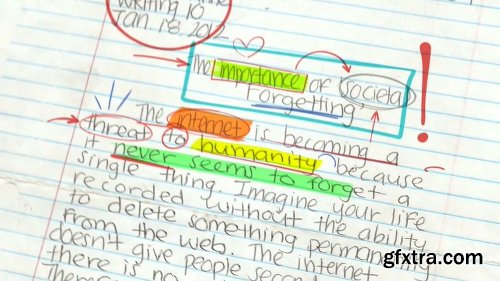 Writing 10
Jan. 18 2012
The importance of societal
Forgetting
The internet is becoming a
threat to humanity because
it never seems to forget a
single thing. Imagine your life
recorded without the ability
to delete something permanently
from the web. The internet
doesn't give people second
there is no
gfxtra.com